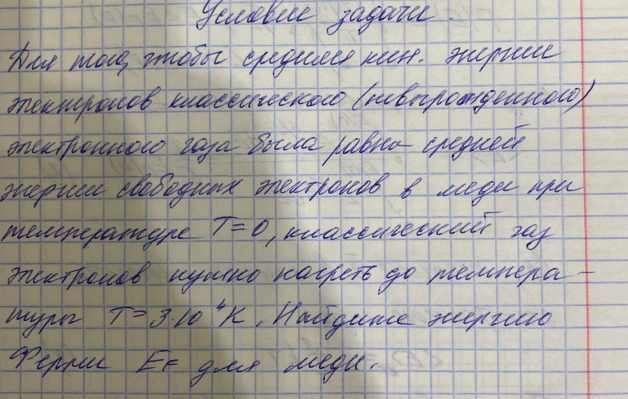 Условие задачи.
Для того, чтобы средняя кин. энергия
электронов классического (невырожденного)
электронного газа была равна средней
энергии свободных электронов в меди при
температуре T=0, классический газ
электронов нужно нагреть до темпера-
туры T=3·10⁴K. Найдите энергию
Ферми EF для меди.